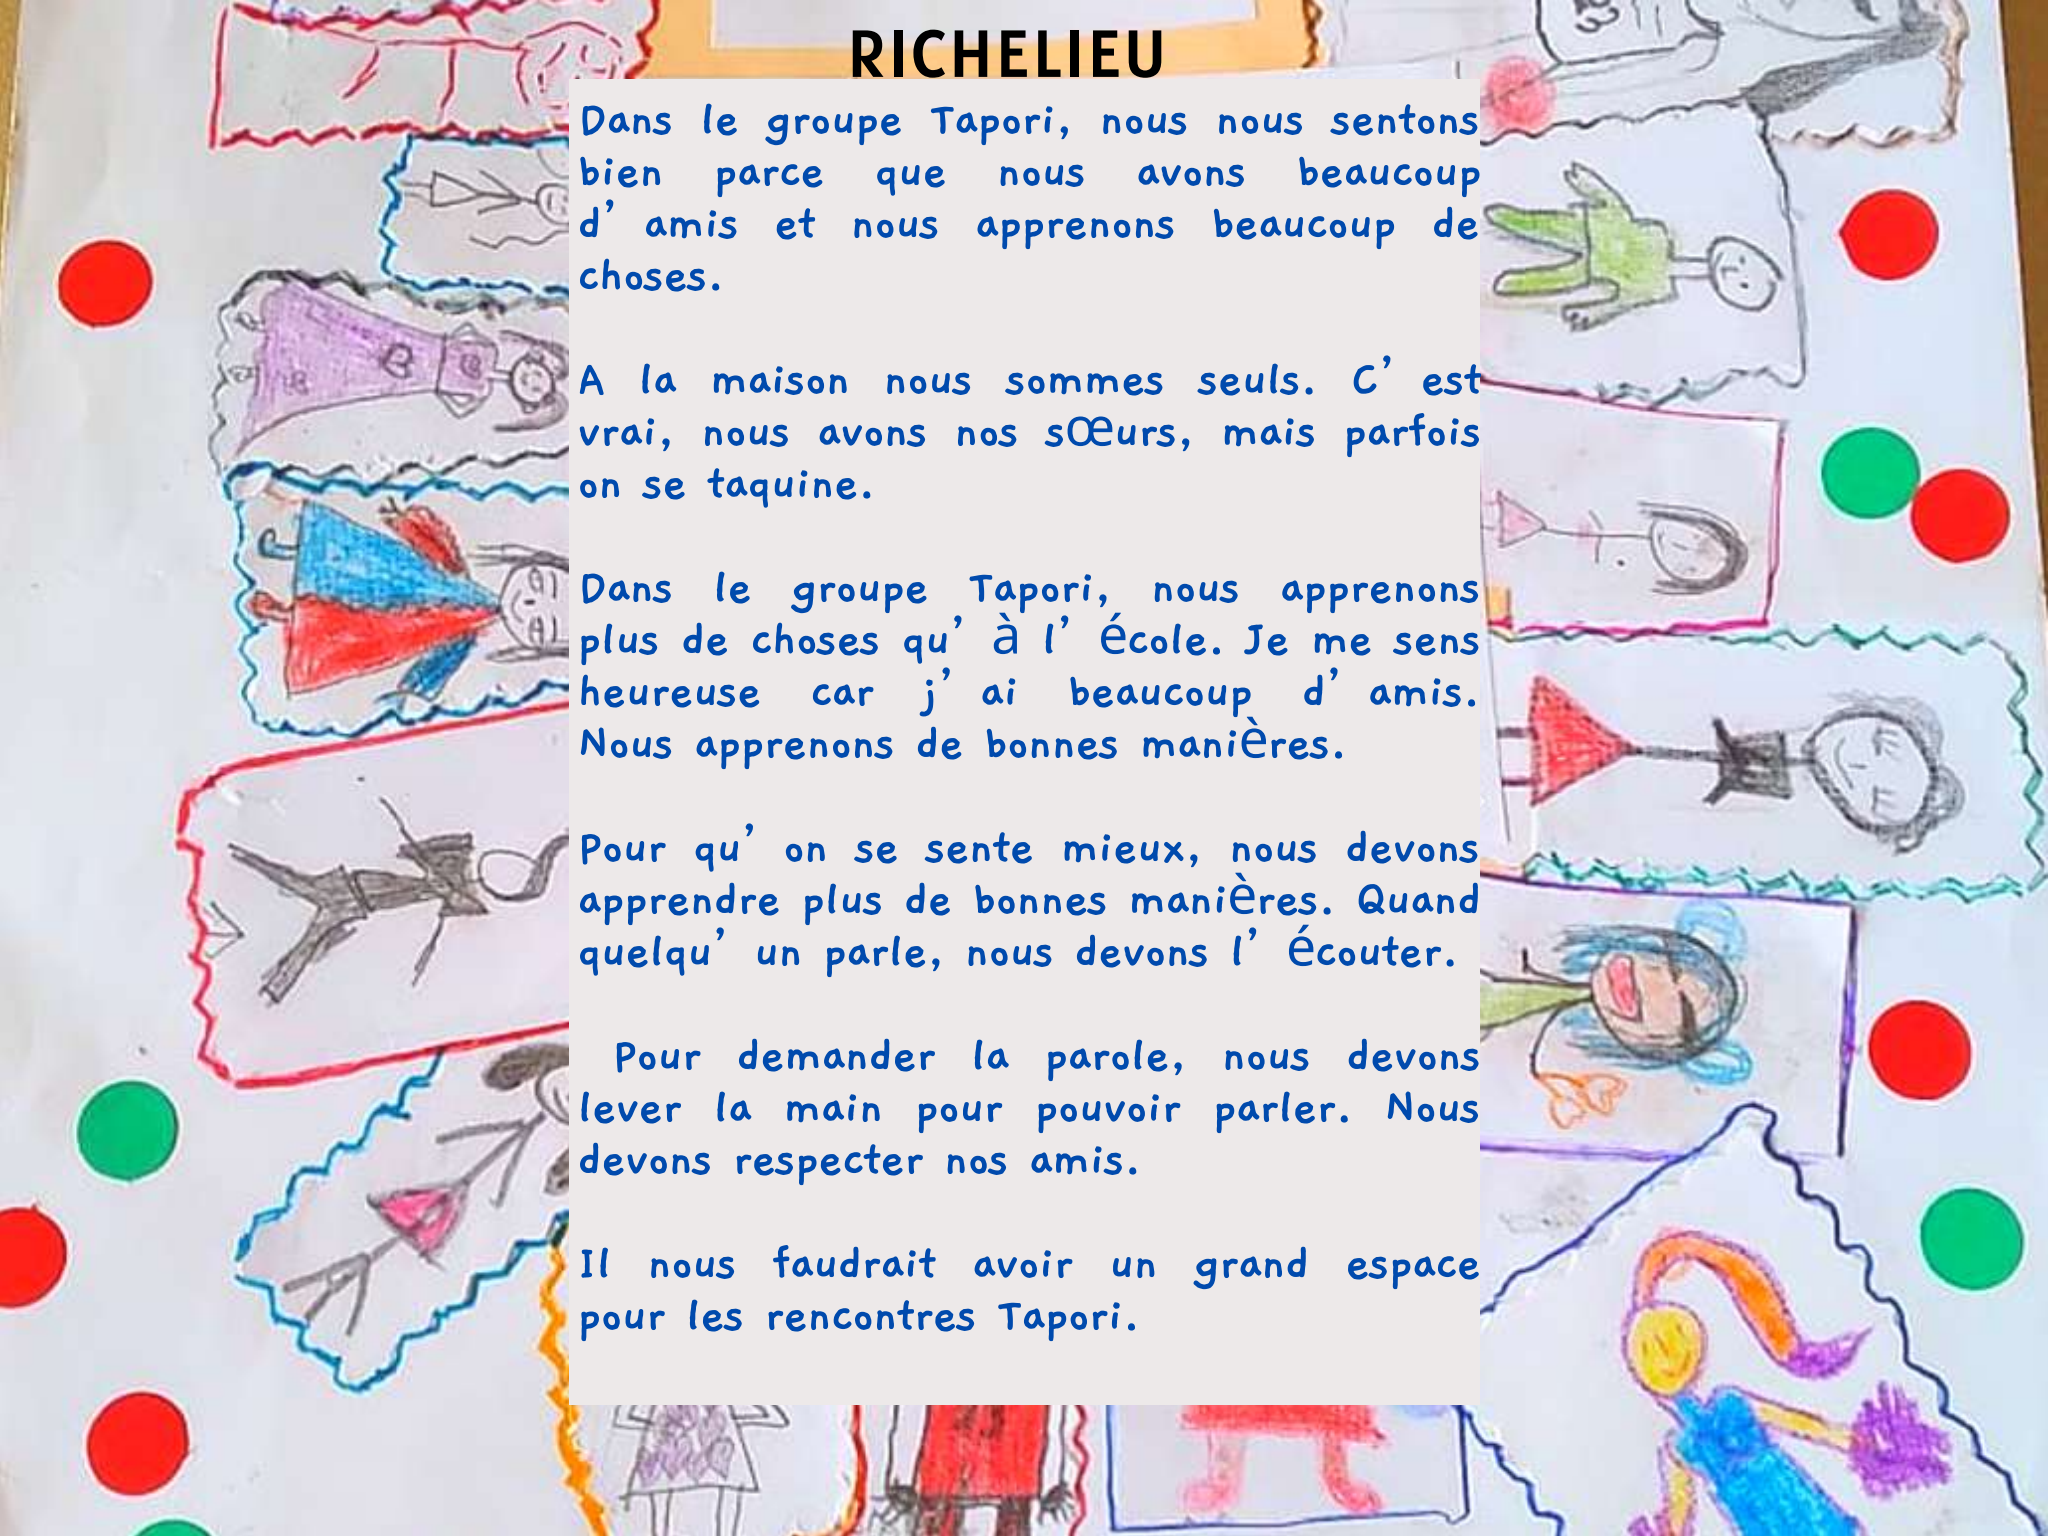 RICHELIEU
Dans le groupe Tapori, nous nous sentons
bien parce que nous avons beaucoup
d’ amis et nous apprenons beaucoup de
choses.
A la maison nous sommes seuls. C’ est
vrai, nous avons nos sœurs, mais parfois
on se taquine.
Dans le groupe Tapori, nous apprenons
plus de choses qu’ à l’ école. Je me sens
heureuse car j’ ai beaucoup d’ amis.
Nous apprenons de bonnes manières.
Pour qu’ on se sente mieux, nous devons
apprendre plus de bonnes manières. Quand
quelqu’ un parle, nous devons l’ écouter.
Pour demander la parole, nous devons
lever la main pour pouvoir parler. Nous
devons respecter nos amis.
Il nous faudrait avoir un grand espace
pour les rencontres Tapori.